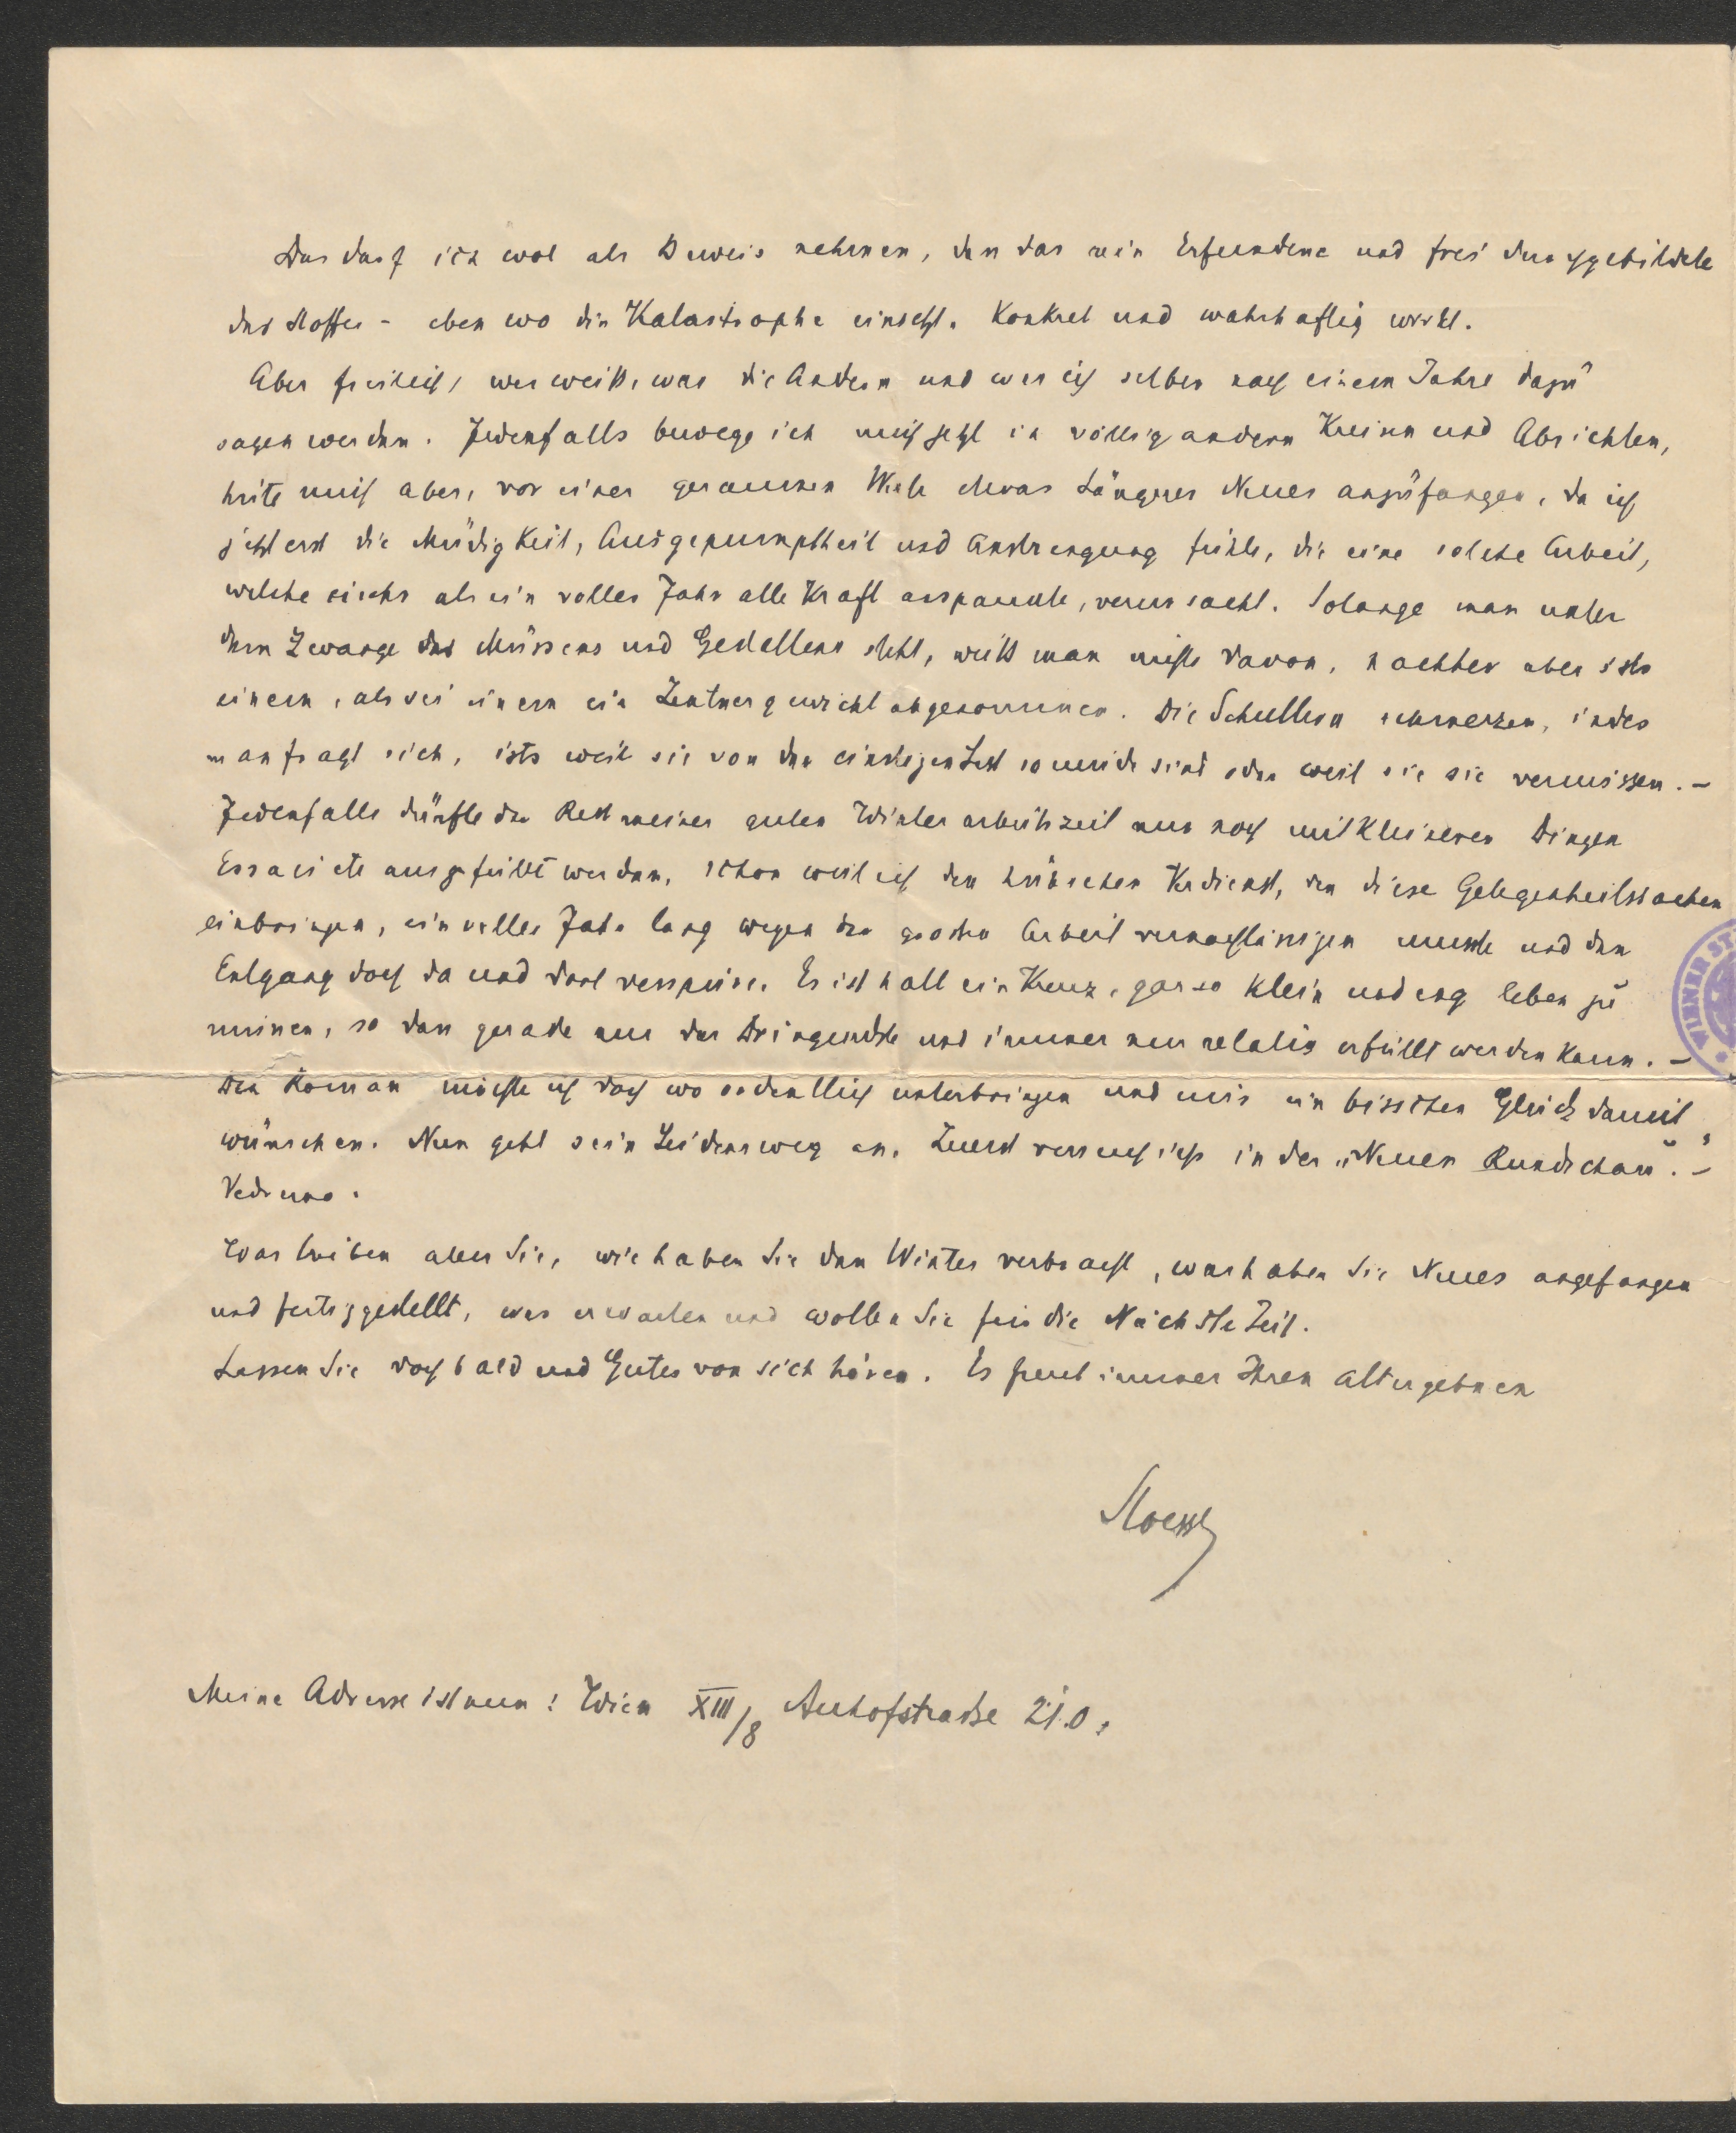 Das darf ich wol als Beweis nehmen, dass das rein Erfundene und frei durchgebildete
des Stoffes – eben wo die Katastrophe einsetzt, konkret und wahrhaftig wirkt.
Aber freilich, wer weiß, was die Andern und was ich selber nach einem Jahre dazu
sagen werden. Jedenfalls bewege ich mich jetzt in völlig andern Kreisen und Absichten,
hüte mich aber, vor einer geraumen Weile etwas Längeres Neues anzufangen, da ich
jetzt erst die Müdigkeit, Ausgepumptheit und Anstrengung fühle, die eine solche Arbeit,
welche mehr als ein volles Jahr alle Kraft anspannte, verursacht. Solange man unter
dem Zwange des Müssens und Gestaltens steht, weiß man nichts davon, nachher aber ists
einem, als sei einem ein Zentnergewicht abgenommen. Die Schultern schmerzen, indes
man fragt sich, ists weil sie von der einstigen Last so müde sind oder weil sie sie vermissen. –
Jedenfalls dürfte der Rest meiner guten Winterarbeitszeit nur noch mit kleineren Dingen
Essais etc ausgefüllt werden, schon weil ich den hübschen Verdienst, den diese Gelegenheitssachen
einbringen, ein volles Jahr lang wegen der großen Arbeit vernachlässigen musste und den
Entgang doch da und dort verspüre. Es ist halt ein Kreuz, gar so klein und eng leben zu
müssen, so dass gerade nur das Dringendste und immer nur relativ erfüllt werden kann. –
Den Roman möchte ich doch wo ordentlich unterbringen und mir ein bisschen Glück damit
wünschen. Nun geht sein Leidensweg an. Zuerst versuch ichs in der „Neuen Rundschau". –
Vedremo.
Was treiben aber Sie, wie haben Sie den Winter verbracht, was haben Sie Neues angefangen
und fertiggestellt, was erwarten und wollen Sie für die Nächste Zeit.
Lassen Sie doch bald und Gutes von sich hören. Es freut immer Ihren altergebnen
Stoessl
Meine Adresse ist nun: Wien XIII/8 Auhofstrasse 210.
WIENER ST